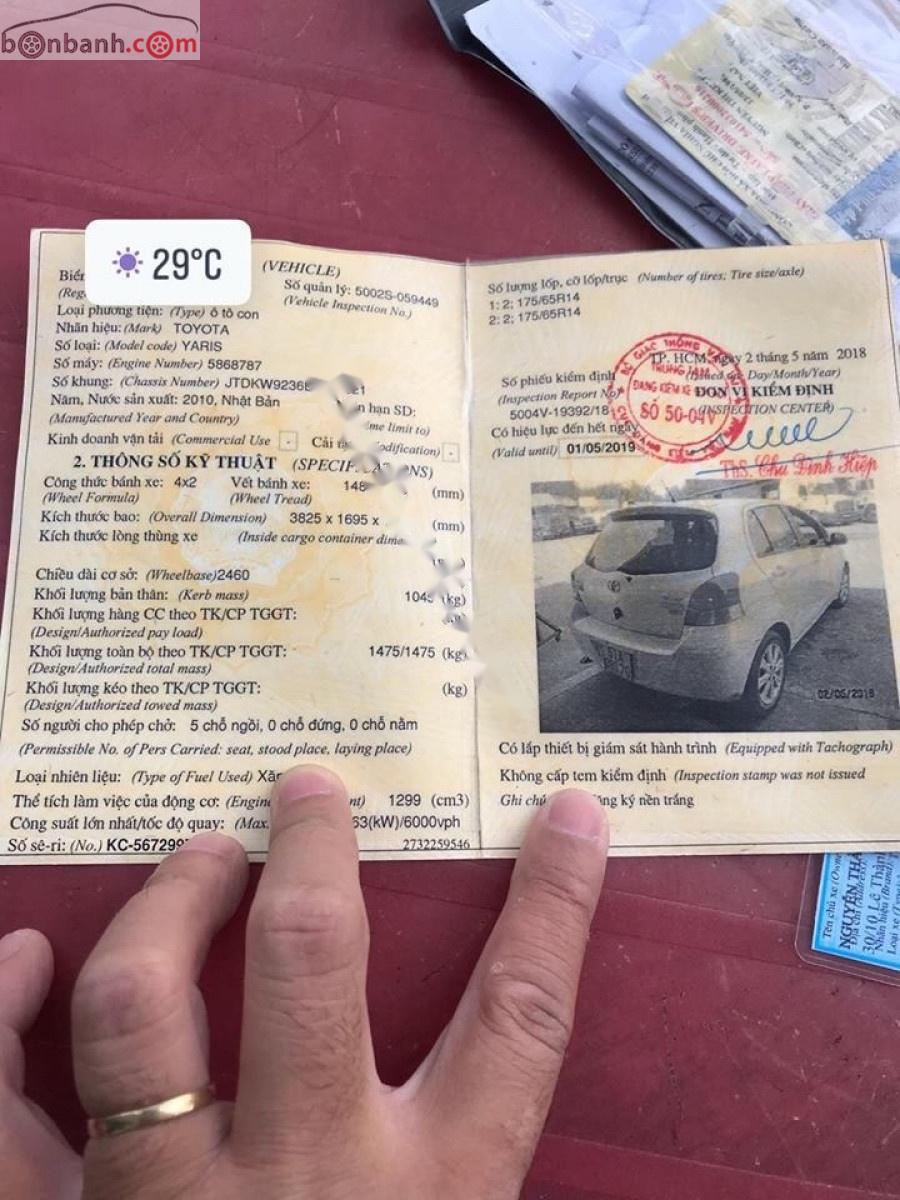 bonbanh.com
29°C
(VEHICLE)
Biển
(Reg
Số quản lý: 5002S-059449
(Vehicle Inspection No.)
Loại phương tiện: (Type) ô tô con
Nhãn hiệu: (Mark) TOYOTA
Số loại: (Model code) YARIS
Số máy: (Engine Number) 5868787
Số khung: (Chassis Number) JTDKW9236
Năm, Nước sản xuất: 2010, Nhật Bản
n hạn SD:
(Manufactured Year and Country)
me limit to)
Kinh doanh vận tải (Commercial Use - Cải tạ odification) -
2. THÔNG SỐ KỸ THUẬT (SPECIF ONS)
Công thức bánh xe: 4x2 Vết bánh xe: 148
(Wheel Formula) (Wheel Tread) (mm)
Kích thước bao: (Overall Dimension) 3825 x 1695 x (mm)
Kích thước lòng thùng xe (Inside cargo container dime
Chiều dài cơ sở: (Wheelbase)2460
Khối lượng bản thân: (Kerb mass) 104 (kg)
Khối lượng hàng CC theo TK/CP TGGT:
(Design/Authorized pay load)
Khối lượng toàn bộ theo TK/CP TGGT: 1475/1475 (kg)
(Design/Authorized total mass)
Khối lượng kéo theo TK/CP TGGT: (kg)
(Design/Authorized towed mass)
Số người cho phép chở: 5 chỗ ngồi, 0 chỗ đứng, 0 chỗ nằm
(Permissible No. of Pers Carried: seat, stood place, laying place)
Loại nhiên liệu: (Type of Fuel Used) Xăn
Thể tích làm việc của động cơ: (Engin nt) 1299 (cm3)
Công suất lớn nhất/tốc độ quay: (Max. 63(kW)/6000vph
Số sê-ri: (No.) KC-567299 2732259546
Số lượng lốp, cỡ lốp/trục (Number of tires; Tire size/axle)
1: 2; 175/65R14
2: 2; 175/65R14
TP. HCM, ngày 2 tháng 5 năm 2018
(Issued on: Day/Month/Year)
Số phiếu kiểm định
(Inspection Report No)
ĐƠN VỊ KIỂM ĐỊNH
5004V-19392/18
(INSPECTION CENTER)
Có hiệu lực đến hết ngày
(Valid until) 01/05/2019
TRUNG TÂM
ĐĂNG KIỂM XE
SỐ 50-04V
ThS. Chu Đình Hiệp
02/05/2018
Có lắp thiết bị giám sát hành trình (Equipped with Tachograph)
Không cấp tem kiểm định (Inspection stamp was not issued
Ghi chú ng ký nền trắng
Tên chủ xe (Own
NGUYỄN THA
Địa chỉ (Address)
30/10 Lê Thàn
Nhãn hiệu (Brand)
Loại xe (Type)